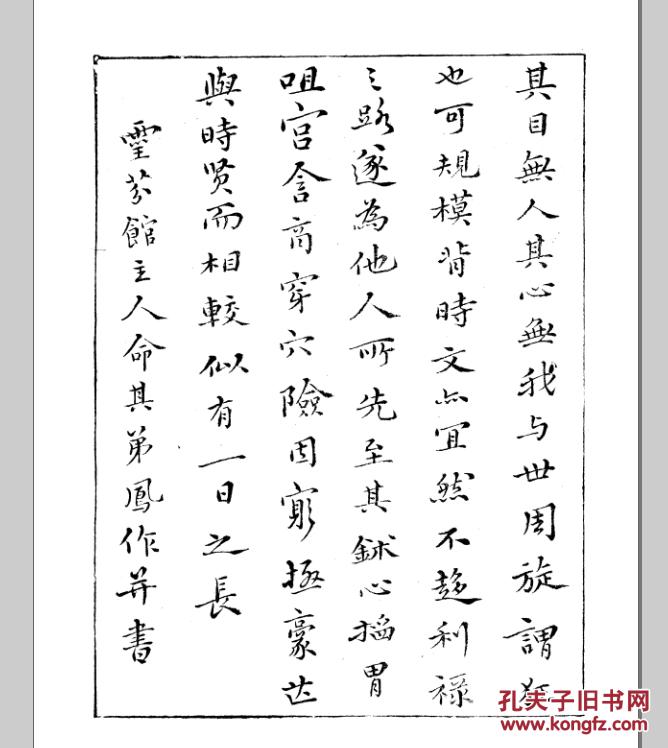 其目無人其心無我与世周旋謂
也可規模背時文亦宜然不趍利祿
之路遂為他人所先至其鉥心搯胃
咀宮含商穿穴險固窮極豪芒
與時贤而相較似有一日之長
靈芬館主人命其弟鳳作并書
孔夫子旧书网
www.kongfz.com